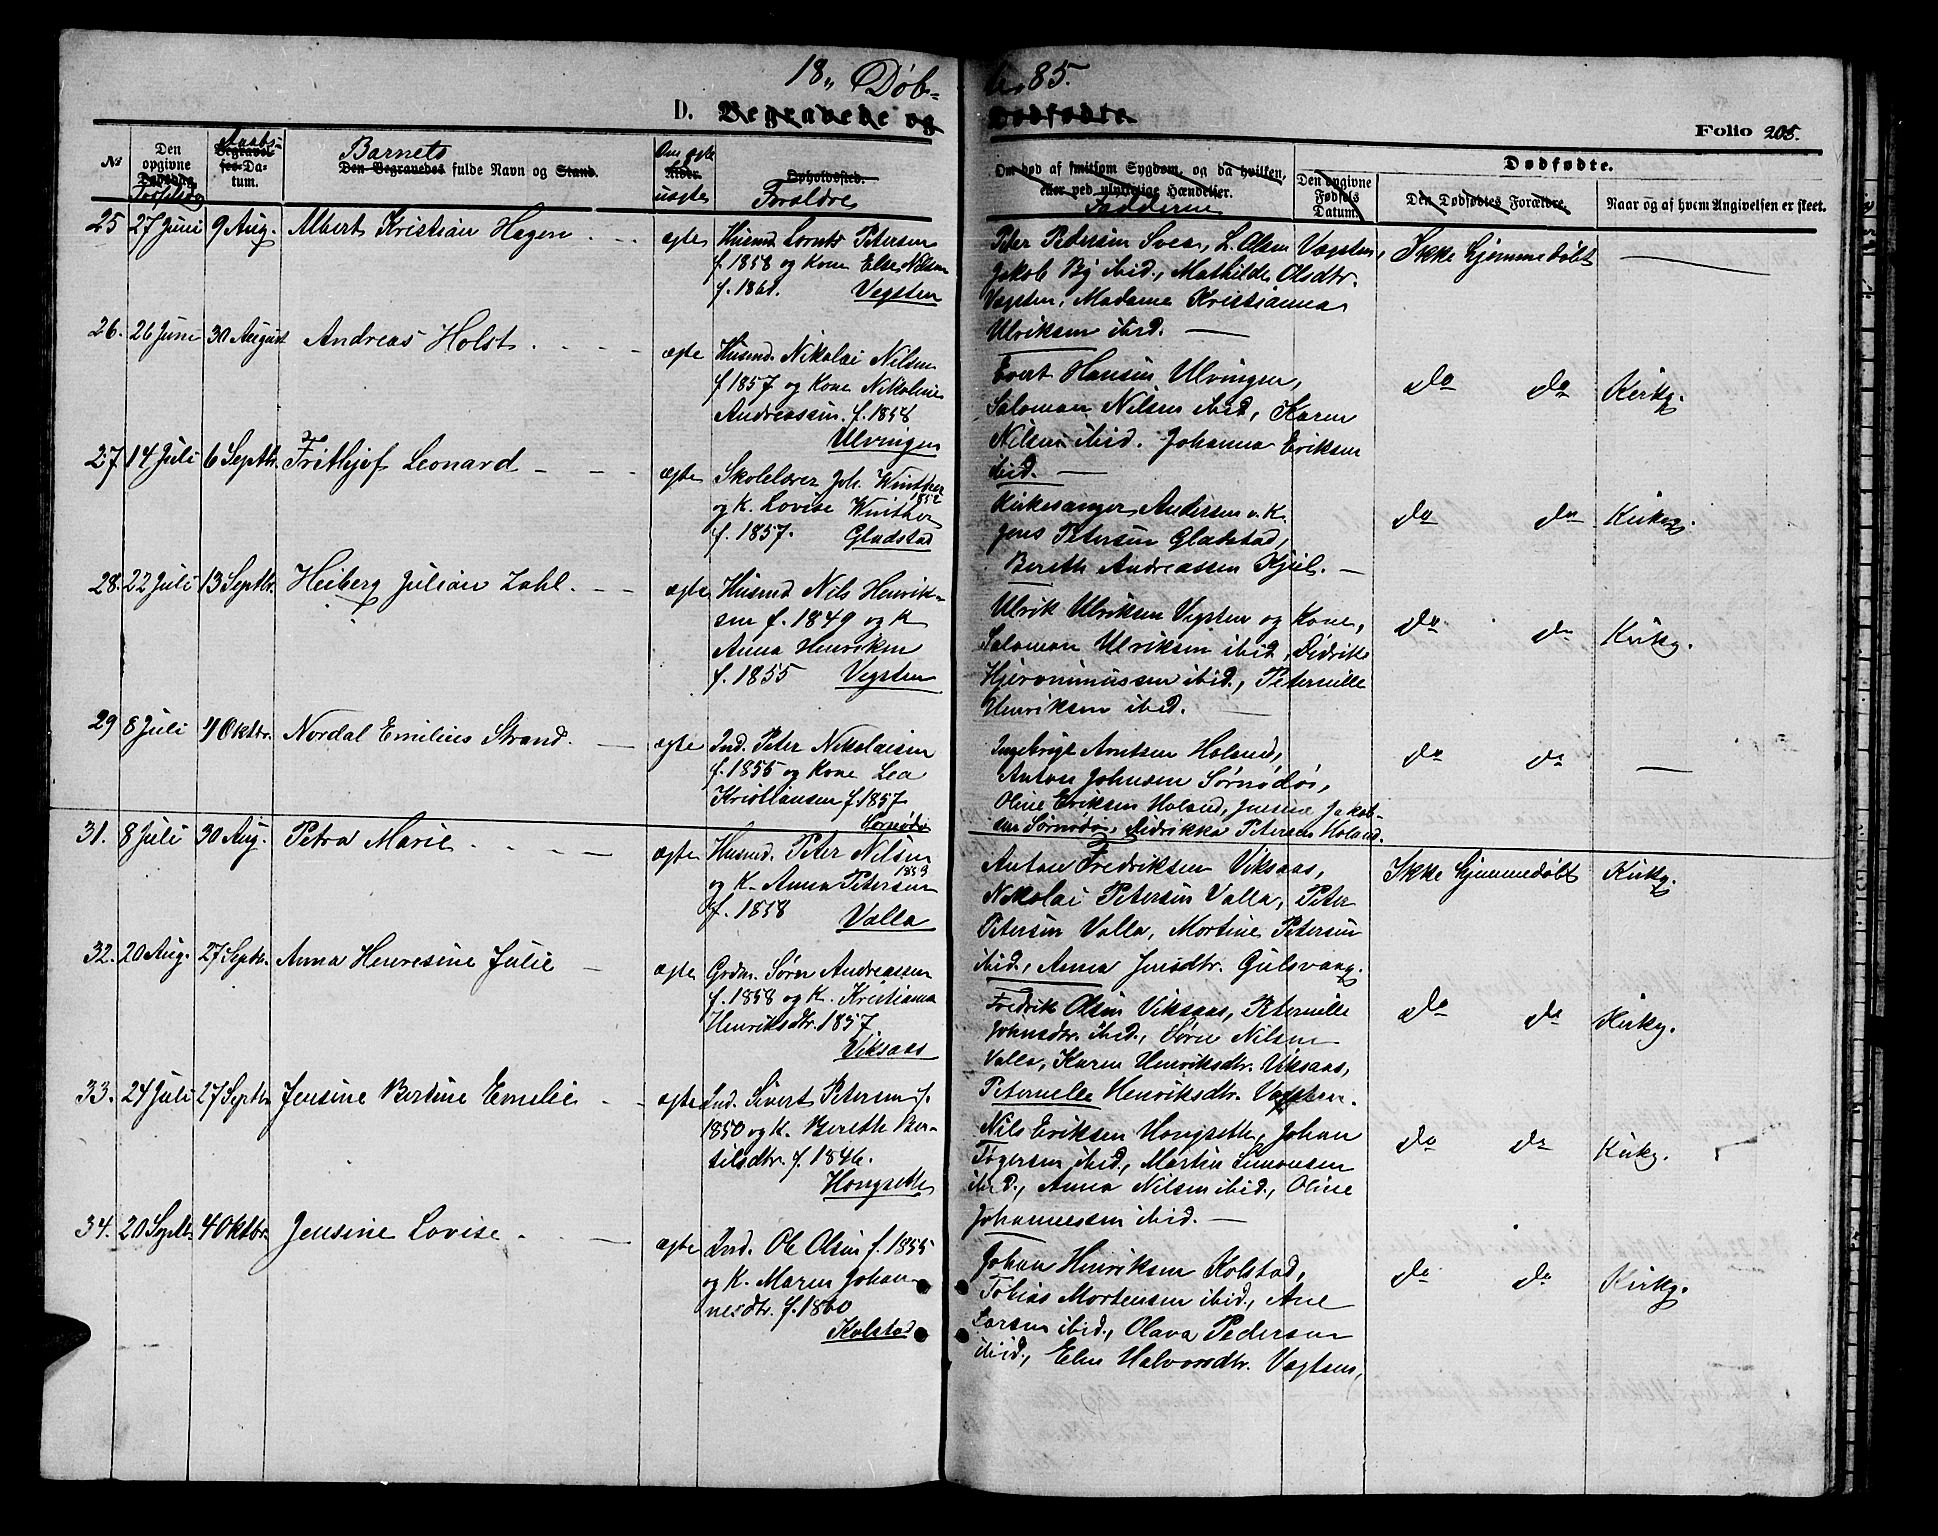 18 „ Døb- te 85.
D. Begravede og Dødfødte.
Folio 205.
№
Den opgivne Dødsdag Fødselsdag
Begravelses-Datum. Daabs-
Den Begravedes fulde Navn og Stand. Barnets
Alder. Om ægte uægte
Opholdssted. Forældre
Om død af smitsom Sygdom, og da hvilken, eller ved ulykkelige Hændelser. Fadderne
Dødfødte.
Den opgivne Fødsels Datum.
Den Dødfødtes Forældre.
Naar og af hvem Angivelsen er skeet.
25 27 Juni 9 Aug. Albert Kristian Hagen ægte
Husmd. Lornts Petersen
f. 1858 og Kone Else Nilsen
f. 1861. Vegsten
Peter Pedersen Svea, L. Olsen Vegsten,
Jakob By ibid., Mathilde Olsdtr.
Vegsten, Madame Kristianna
Ulriksen ibid. —
Ikke hjemmedøbt —
26. 26 Juni 30 August Andreas Holst ægte
Husmd. Nikolai Nilsen
f. 1857 og Kone Nikoline
Andreassen f. 1858
Ulvingen
Evert Hansen Ulvingen,
Saloman Nilsen ibid, Karen
Nilsen ibid. Johanna Eriksen
ibid. —
do do Kirkg.
27 14 Juli 6 Septbr. Frithjof Leonard ægte
Skolelærer Joh. Winther
1852
og K. Lovise Winther
f. 1857. Gladstad
Kirkesanger Andersen o. K.
Jens Petersen Gladstad,
Bereth Andreassen Kjul. —
do do Kirkg.
28. 22 Juli 13 Septbr. Heiberg Julian Zahl. ægte
Husmd Nils Henrik-
sen f. 1849 og K
Anna Henriksen
f. 1855 Vegsten
Ulrik Ulriksen Vegsten og Kone,
Saloman Ulriksen ibid, Didrikke
Hjeronimussen ibid., Peternille
Henriksen ibid. —
do do Kirkg.
29 8 Juli 4 Oktbr. Nordal Emilius Strand. ægte
Ind. Peter Nikolaisen
f. 1855 og Kone Lea
Kristiansen f. 1857
Sørnødø
Ingebrigt Arntsen Holand,
Anton Johnsen Sørnødø,
Oline Eriksen Holand, Jensine Jakob-
sen Sørnødø, Didrikka Petersen Holand.
do do —
31. 8 Juli 30 Aug. Petra Marie ægte
Husmd. Peter Nilsen
1853
og K. Anna Petersen
f. 1858 Valla
Anton Fredriksen Viksaas,
Nikolai Petersen Valla, Peter
Petersen Valla, Mortine Petersen
ibid., Anna Jensdtr. Gulsvaag.
Ikke hjemmedøbt Kirkg.
32. 20 Aug. 27 Septbr. Anna Henresine Julie ægte
Grdm. Søren Andreassen
f. 1858 og K. Kristianna
Henriksdtr. 1857.
Viksaas
Fredrik Olsen Viksaas, Peternille
Johnsdtr. ibid., Søren Nilsen
Valla, Karen Henriksdtr. Viksaas,
Peternelle Henriksdtr. Vegsten.
do do Kirkg.
33. 24 Juli 27 Septbr Jensine Bertine Emelie ægte
Ind. Sivert Petersen f.
1850 og K. Bereth Ber-
tilsdtr. f. 1846.
Hongseth
Nils Eriksen Hongseth, Johan
Tøgersen ibid., Martin Simonsen
ibid., Anna Nilsen ibid., Oline
Johannessen ibid. —
do do Kirkg.
34. 20 Septbr 4 Oktbr. Jensine Lovise ægte
Ind. Ole Olsen f. 1855
og K. Maren Johan-
nesdtr. f. 1860
Kolstad
Johan Henriksen Kolstad,
Tobias Mortensen ibid., Ane
Larsen ibid., Olava Pedersen
ibid., Elen Halvorsdtr. Vegsten,
do do Kirkg.